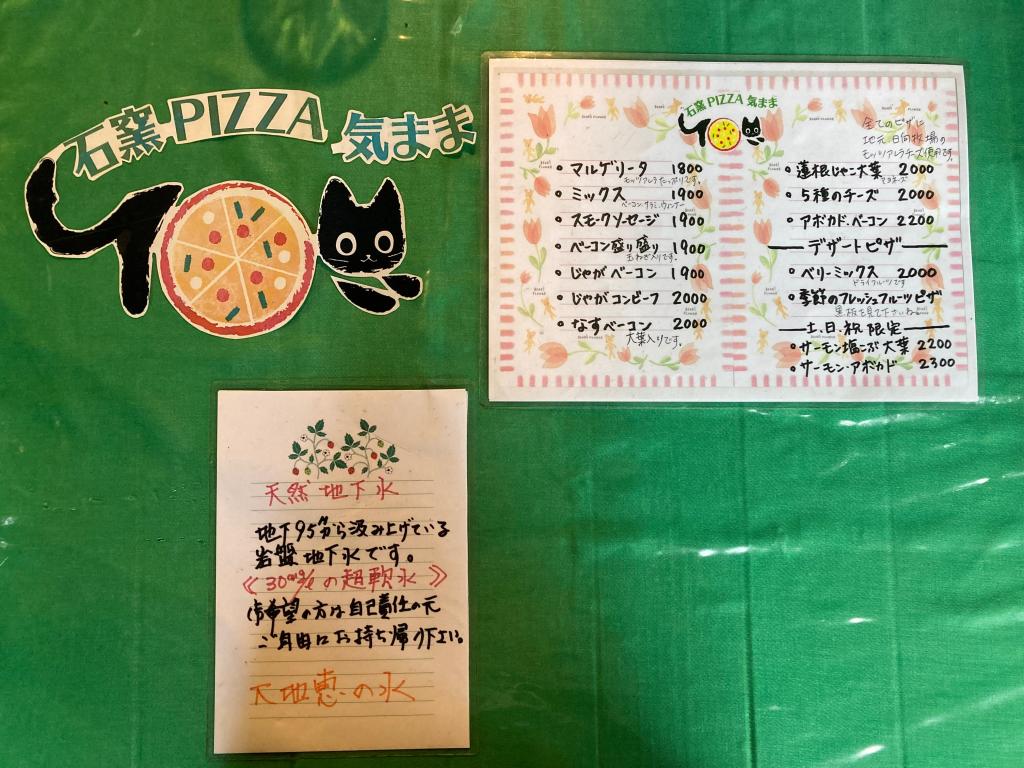 石窯 PIZZA 気まま
石窯 PIZZA 気まま
全てのピザに
地元、日向牧場の
モッツァレラチーズ使用です。
・マルゲリータ 1800
モッツァレラたっぷりです。
・ミックス 1900
ベーコン、サラミ、ウィンナー
・スモークソーセージ 1900
・ベーコン盛り盛り 1900
玉ねぎ入りです。
・じゃがベーコン 1900
・じゃがコンビーフ 2000
・なすベーコン 2000
大葉入りです。
・蓮根じゃこ大葉 2000
マヨネーズ
・5種のチーズ 2000
・アボカド、ベーコン 2200
デザートピザ
・ベリーミックス 2000
ドライフルーツです
・季節のフレッシュフルーツピザ
黒板を見て下さいね
土、日、祝 限定
・サーモン塩こぶ大葉 2200
・サーモン・アボカド 2300
天然地下水
地下95mから汲み上げている
岩盤地下水です。
《30mg/ℓの超軟水》
御希望の方は自己責任の元
ご自由にお持ち帰り下さい。
大地恵の水